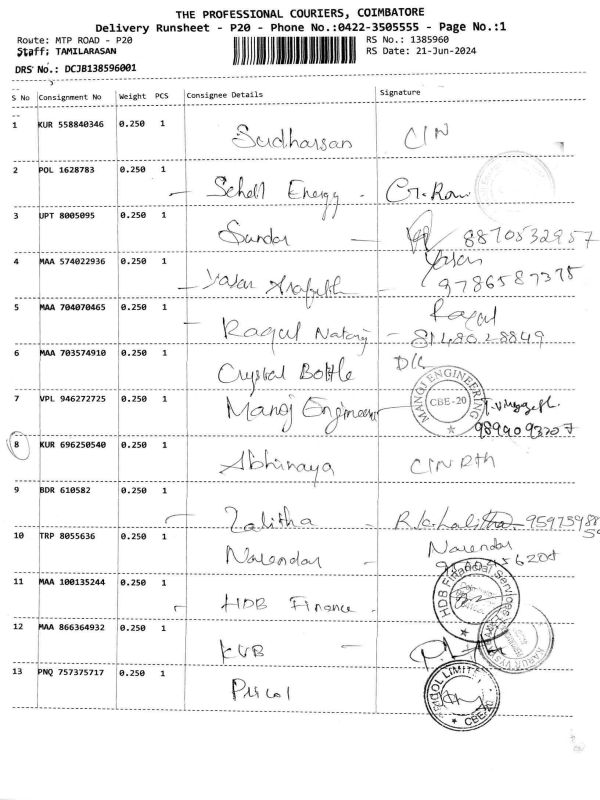 THE PROFESSIONAL COURIERS, COIMBATORE
Delivery Runsheet - P20 - Phone No.:0422-3505555 - Page No.:1
Route: MTP ROAD - P20 RS No.: 1385960
Staff: TAMILARASAN RS Date: 21-Jun-2024
DRS No.: DCJB138596001
S No Consignment No Weight PCS Consignee Details Signature
1 KUR 558840346 0.250 1 Sudharsan
2 POL 1628783 0.250 1 Schell Energy - G. Ram
3 UPT 8005095 0.250 1 Sundar - 8870532957
4 MAA 574022936 0.250 1 Yasar Arafath Yasar
9786587375
5 MAA 704070465 0.250 1 Ragul Nataraj - Ragul
8148028849
6 MAA 703574910 0.250 1 Crystal Bottle
7 VPL 946272725 0.250 1 Manoj Engineer MANOJ ENGINEERING CBE-20
8 KUR 696250540 0.250 1 Abhinaya
9 BDR 610582 0.250 1 Lalitha - R.K. Lalitha
10 TRP 8055636 0.250 1 Narendar - Narendar
11 MAA 100135244 0.250 1 HDB Finance - HDB Financial Services
12 MAA 866364932 0.250 1 KVB -
13 PNQ 757375717 0.250 1 Pricol LIMITED CBE-20